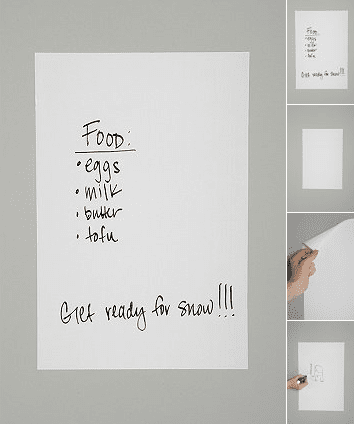 Food:
• eggs
• milk
• butter
• tofu
Get ready for snow!!!
Food:
• eggs
• milk
• butter
• tofu
Get ready for snow!!!